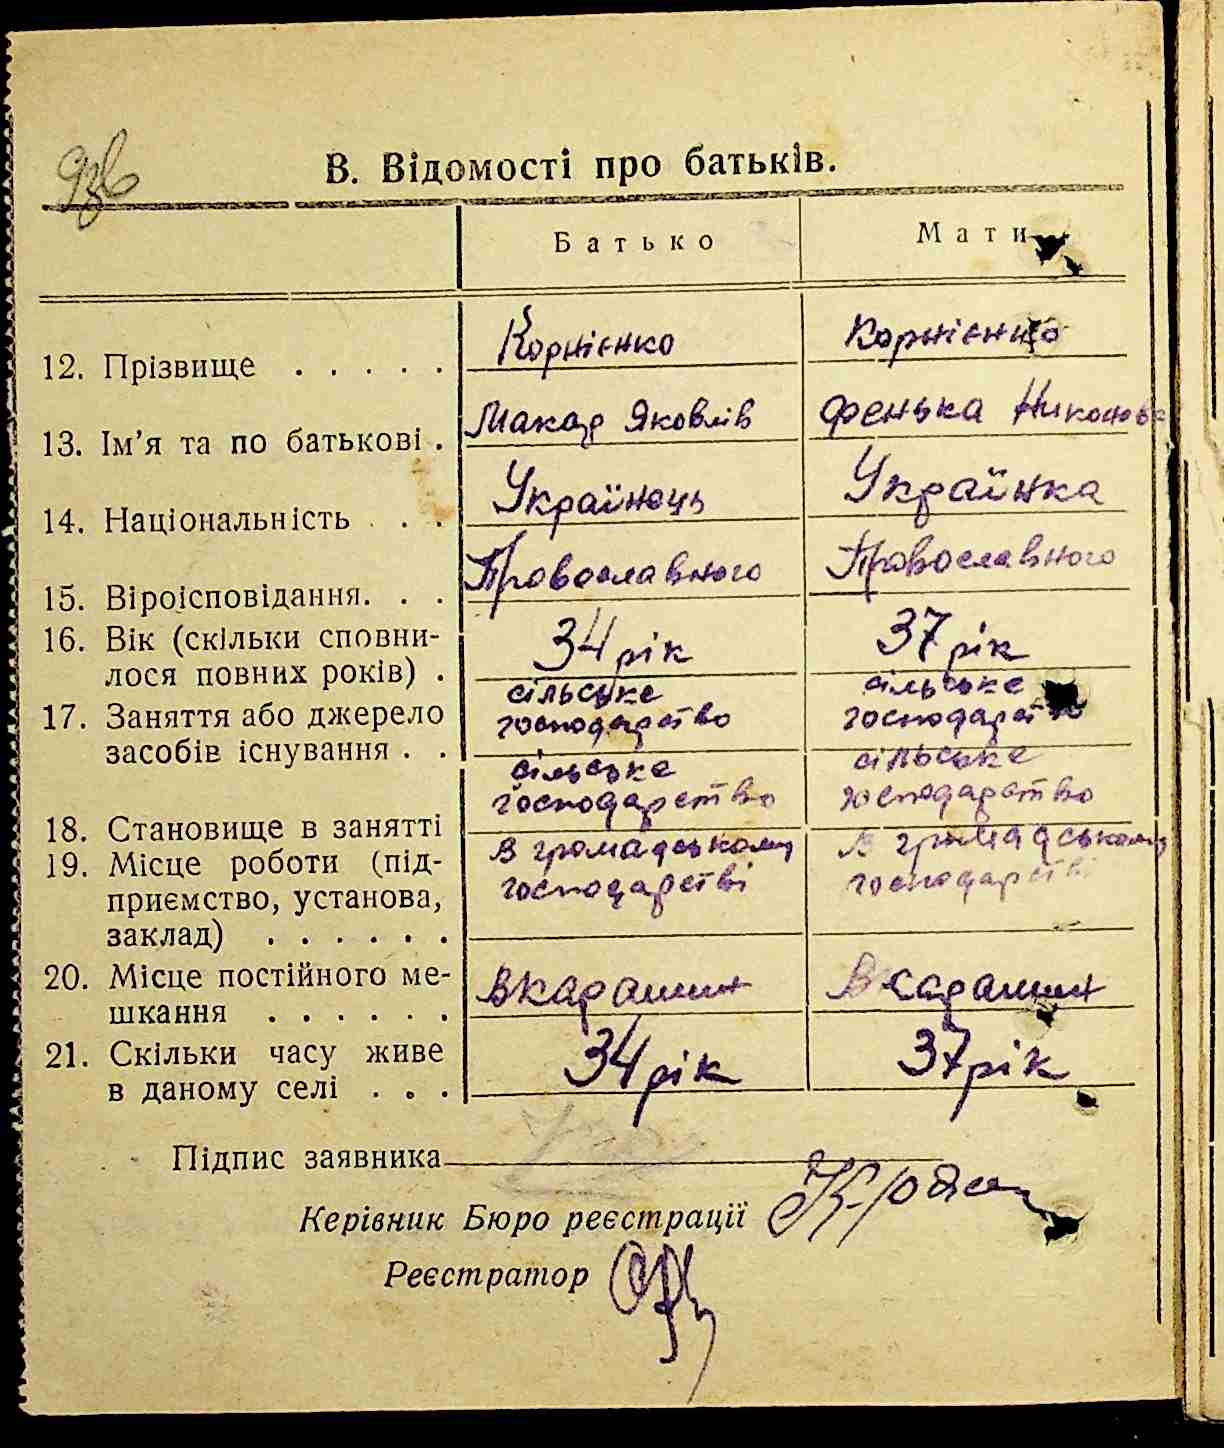 В. Відомості про батьків.
Батько Мати
12. Прізвище . . . . . Корнієнко Корнієнко
13. Ім'я та по батькові . Макар Яковлів Фенька Никонова
14. Національність . . . Українець Українка
15. Віроісповідання. . . Провославного Провославного
16. Вік (скільки сповни-
лося повних років) . 34 рік 37 рік
17. Заняття або джерело
засобів існування . . сільське господарство сільське господарство
18. Становище в занятті сільське господарство сільське господарство
19. Місце роботи (під-
приємство, установа,
заклад) . . . . . . в громадському господарстві в громадському господарстві
20. Місце постійного ме-
шкання . . . . . .
21. Скільки часу живе
в даному селі . . . 34 рік 37 рік
Підпис заявника
Керівник Бюро реєстрації
Реєстратор